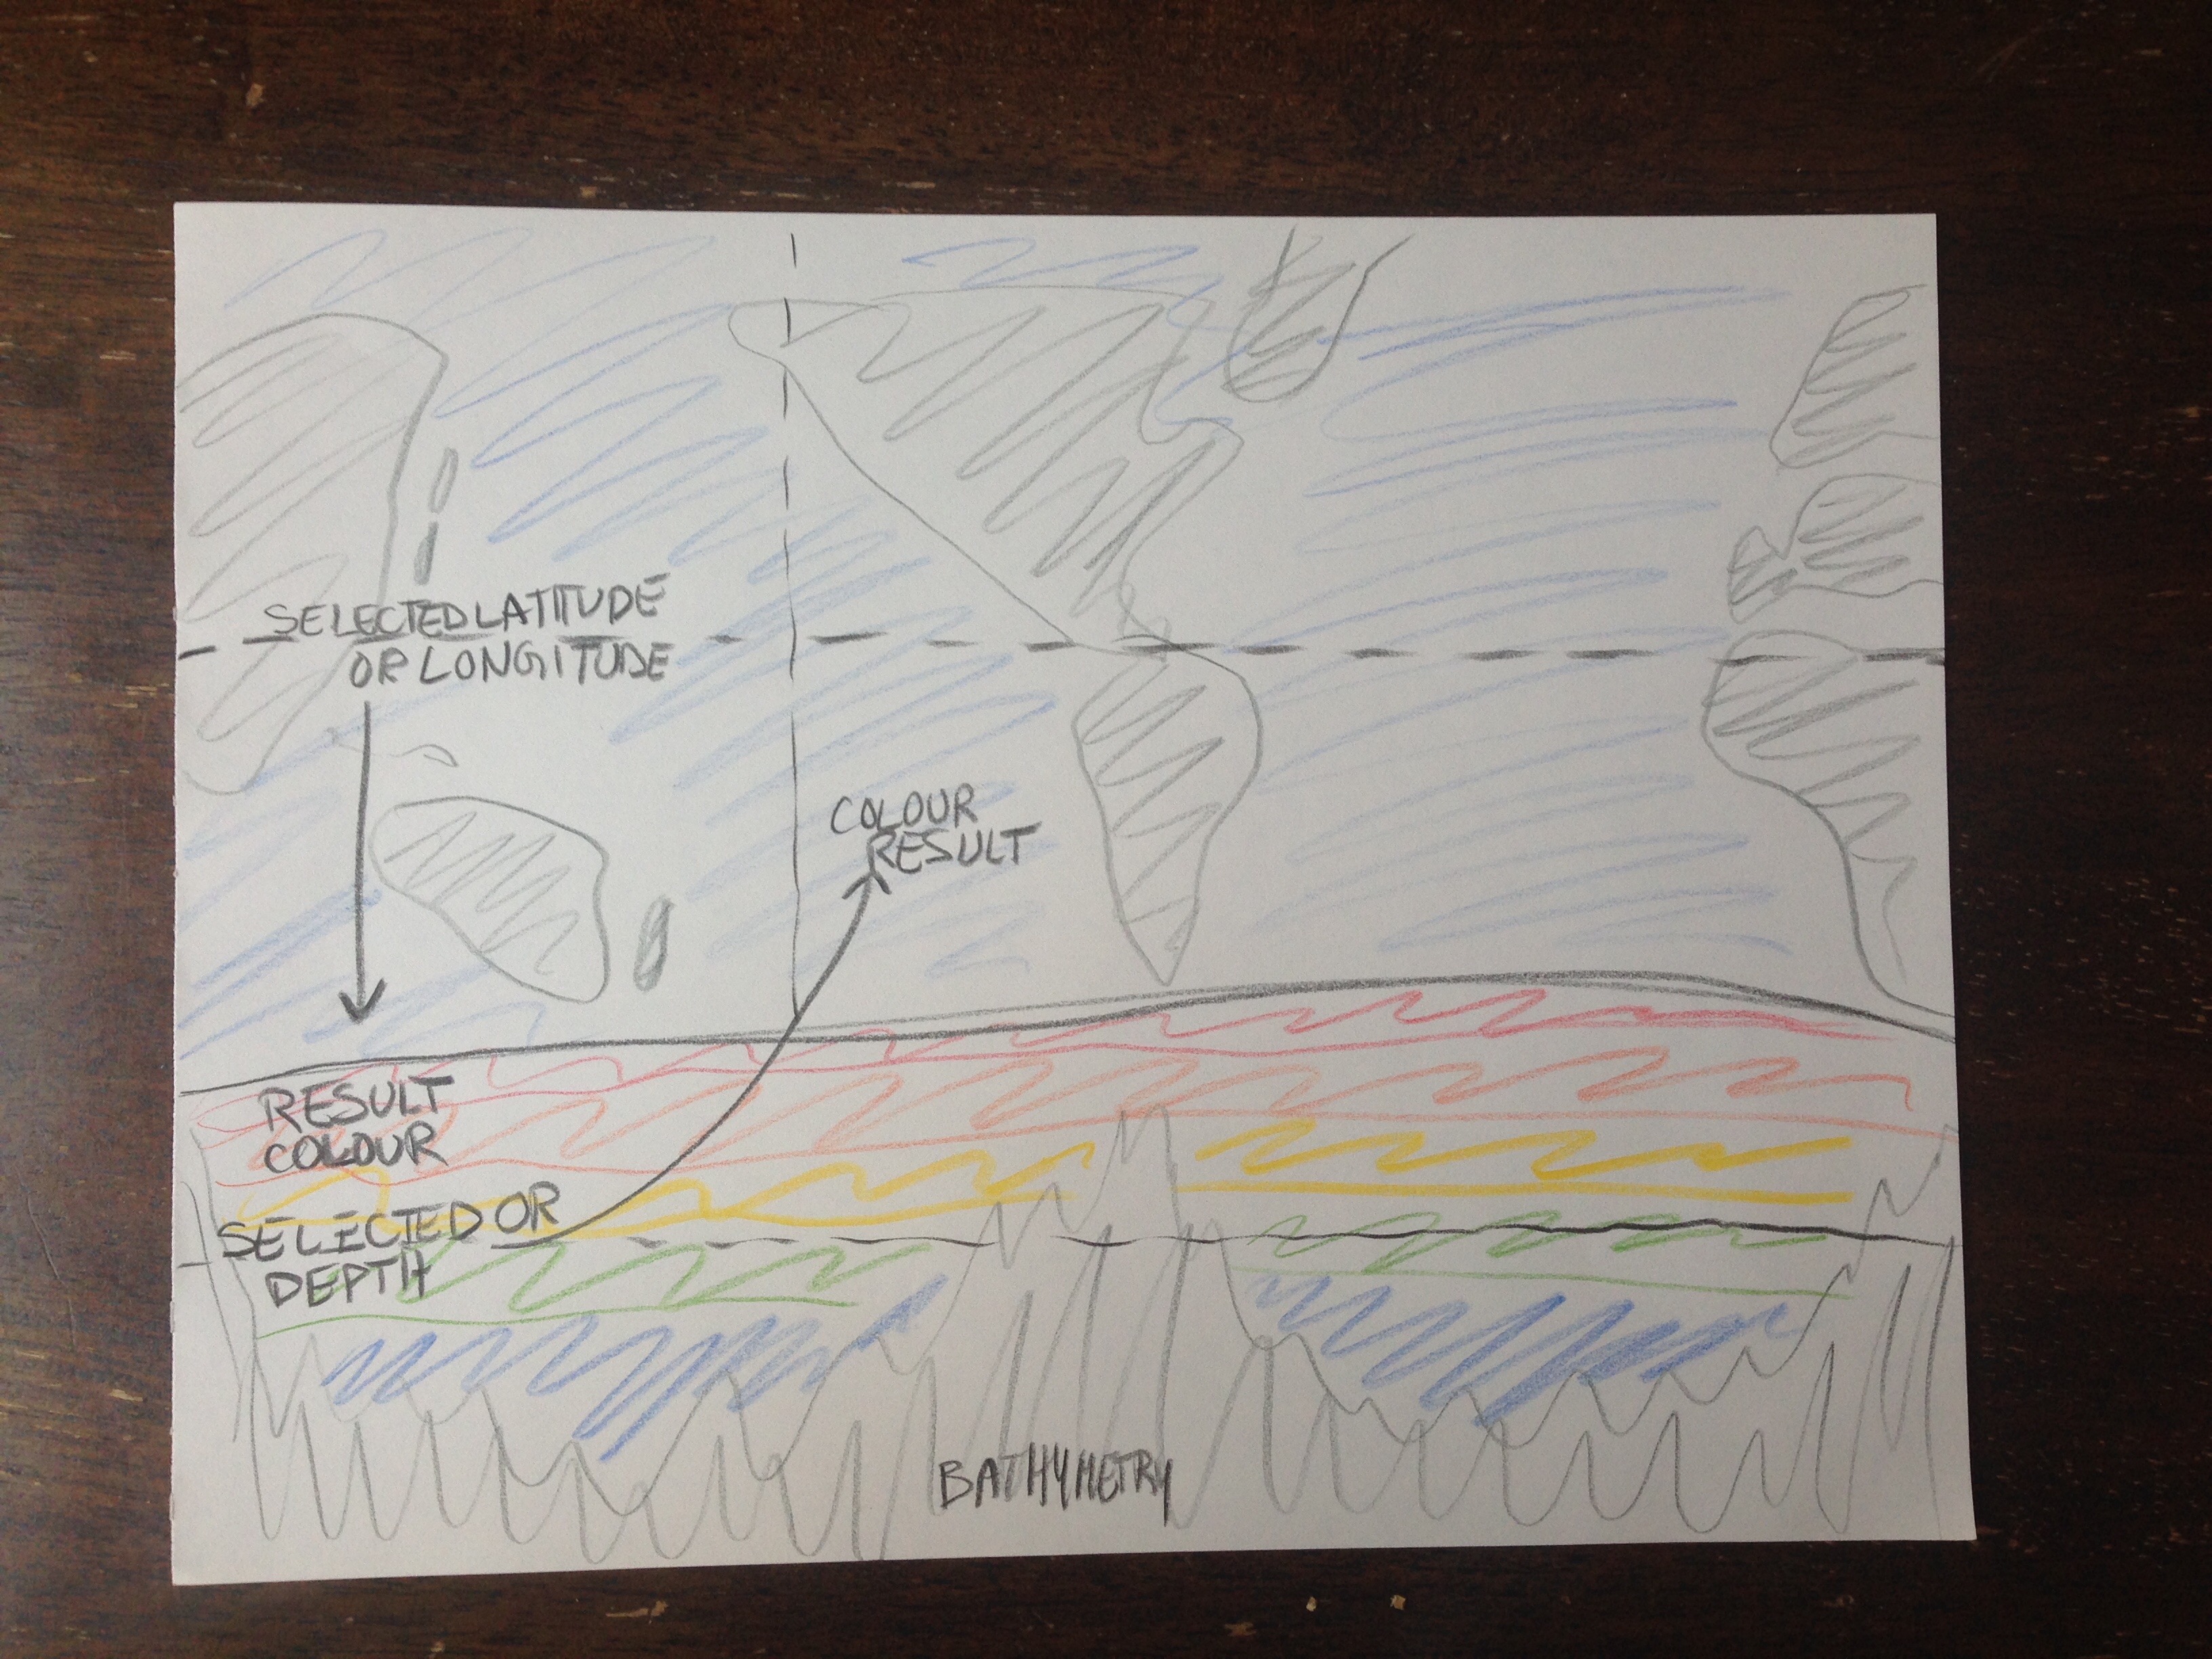 SELECTED LATITUDE
OR LONGITUDE
COLOUR
RESULT
RESULT
COLOUR
SELECTED OR
DEPTH
BATHYMETRY